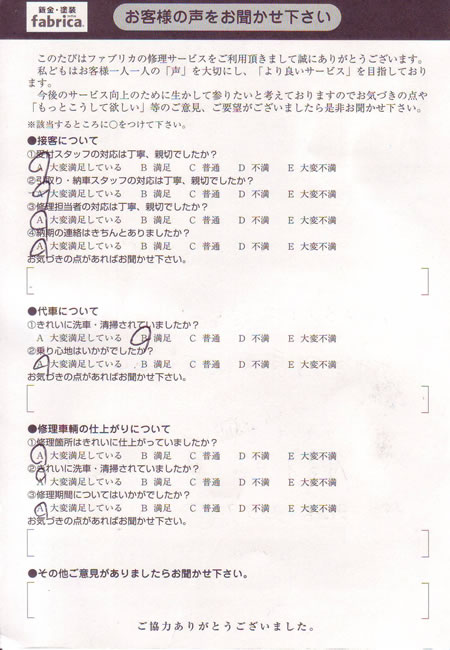 鈑金・塗装
fabrica.
お客様の声をお聞かせ下さい
このたびはファブリカの修理サービスをご利用頂きまして誠にありがとうございます。
私どもはお客様一人一人の「声」を大切にし、「より良いサービス」を目指しており
ます。
今後のサービス向上のために生かして参りたいと考えておりますのでお気づきの点や
「もっとこうして欲しい」等のご意見、ご要望がございましたら是非お聞かせ下さい。
※該当するところに○をつけて下さい。
●接客について
①受付スタッフの対応は丁寧、親切でしたか?
A 大変満足している B 満足 C 普通 D 不満 E 大変不満
②引取り・納車スタッフの対応は丁寧、親切でしたか?
A 大変満足している B 満足 C 普通 D 不満 E 大変不満
③修理担当者の対応は丁寧、親切でしたか?
A 大変満足している B 満足 C 普通 D 不満 E 大変不満
④納期の連絡はきちんとありましたか?
A 大変満足している B 満足 C 普通 D 不満 E 大変不満
お気づきの点があればお聞かせ下さい。
●代車について
①きれいに洗車・清掃されていましたか?
A 大変満足している B 満足 C 普通 D 不満 E 大変不満
②乗り心地はいかがでしたか?
A 大変満足している B 満足 C 普通 D 不満 E 大変不満
お気づきの点があればお聞かせ下さい。
●修理車輛の仕上がりについて
①修理箇所はきれいに仕上がっていましたか?
A 大変満足している B 満足 C 普通 D 不満 E 大変不満
②きれいに洗車・清掃されていましたか?
A 大変満足している B 満足 C 普通 D 不満 E 大変不満
③修理期間についてはいかがでしたか?
A 大変満足している B 満足 C 普通 D 不満 E 大変不満
お気づきの点があればお聞かせ下さい。
●その他ご意見がありましたらお聞かせ下さい。
ご協力ありがとうございました。